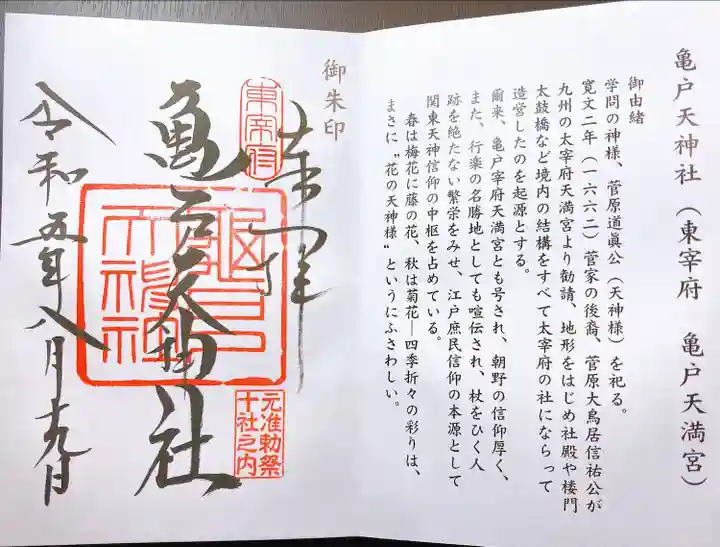 亀戸天神社（東宰府　亀戸天満宮）
御由緒
学問の神様、菅原道眞公（天神様）を祀る。
寛文二年（一六六二）菅家の後裔、菅原大鳥居信祐公が
九州の太宰府天満宮より勧請、地形をはじめ社殿や楼門
太鼓橋など境内の結構をすべて太宰府の社にならって
造営したのを起源とする。
爾来、亀戸宰府天満宮とも号され、朝野の信仰厚く、
また、行楽の名勝地としても喧伝され、杖をひく人
跡を絶たない繁栄をみせ、江戸庶民信仰の本源として
関東天神信仰の中枢を占めている。
春は梅花に藤の花、秋は菊花―四季折々の彩りは、
まさに〝花の天神様〟というにふさわしい。
御朱印
奉拝
東宰府
亀戸天神社
亀戸天神社
元准勅祭
十社之内
令和五年八月十九日